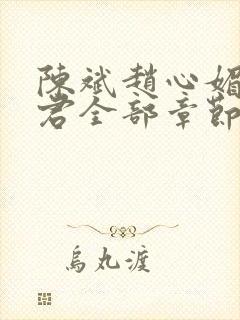 陳斌趙心媚
君全部章節
烏丸渡